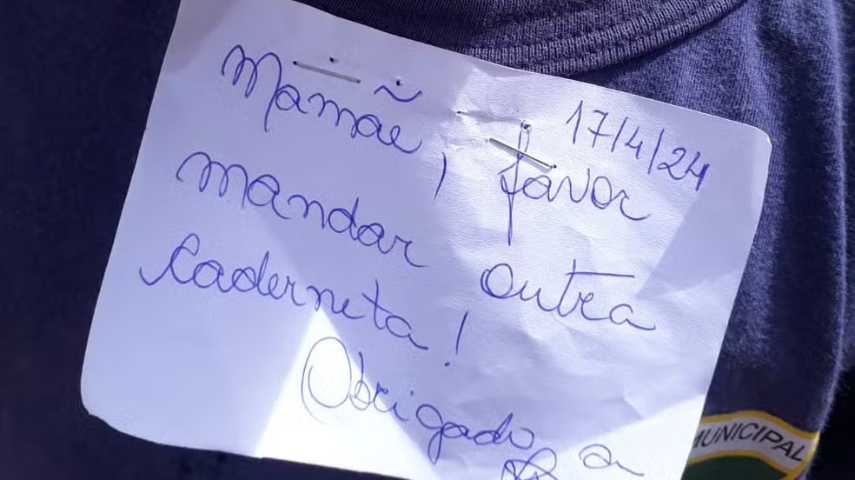 17/4/24
Mamãe, favor
mandar outra
Caderneta!
Obrigado, a
MUNICIPAL